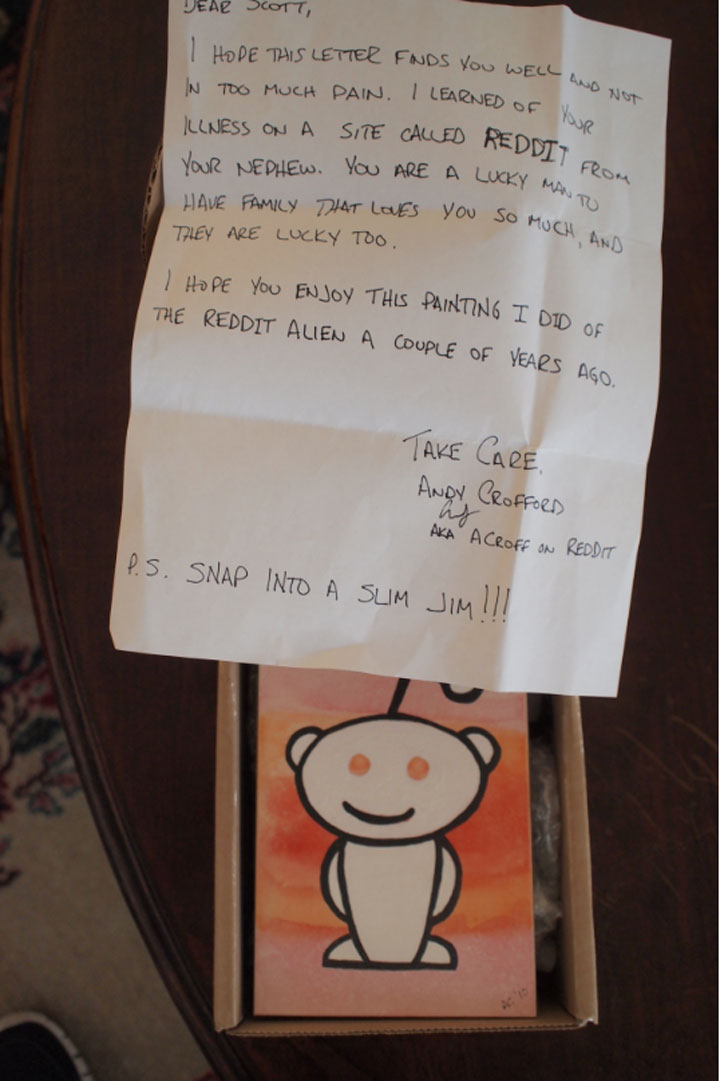 DEAR SCOTT,
I HOPE THIS LETTER FINDS YOU WELL AND NOT
IN TOO MUCH PAIN. I LEARNED OF YOUR
ILLNESS ON A SITE CALLED REDDIT FROM
YOUR NEPHEW. YOU ARE A LUCKY MAN TO
HAVE FAMILY THAT LOVES YOU SO MUCH, AND
THEY ARE LUCKY TOO.
I HOPE YOU ENJOY THIS PAINTING I DID OF
THE REDDIT ALIEN A COUPLE OF YEARS AGO.
TAKE CARE.
ANDY CROFFORD
AKA ACROFF ON REDDIT
P.S. SNAP INTO A SLIM JIM!!!